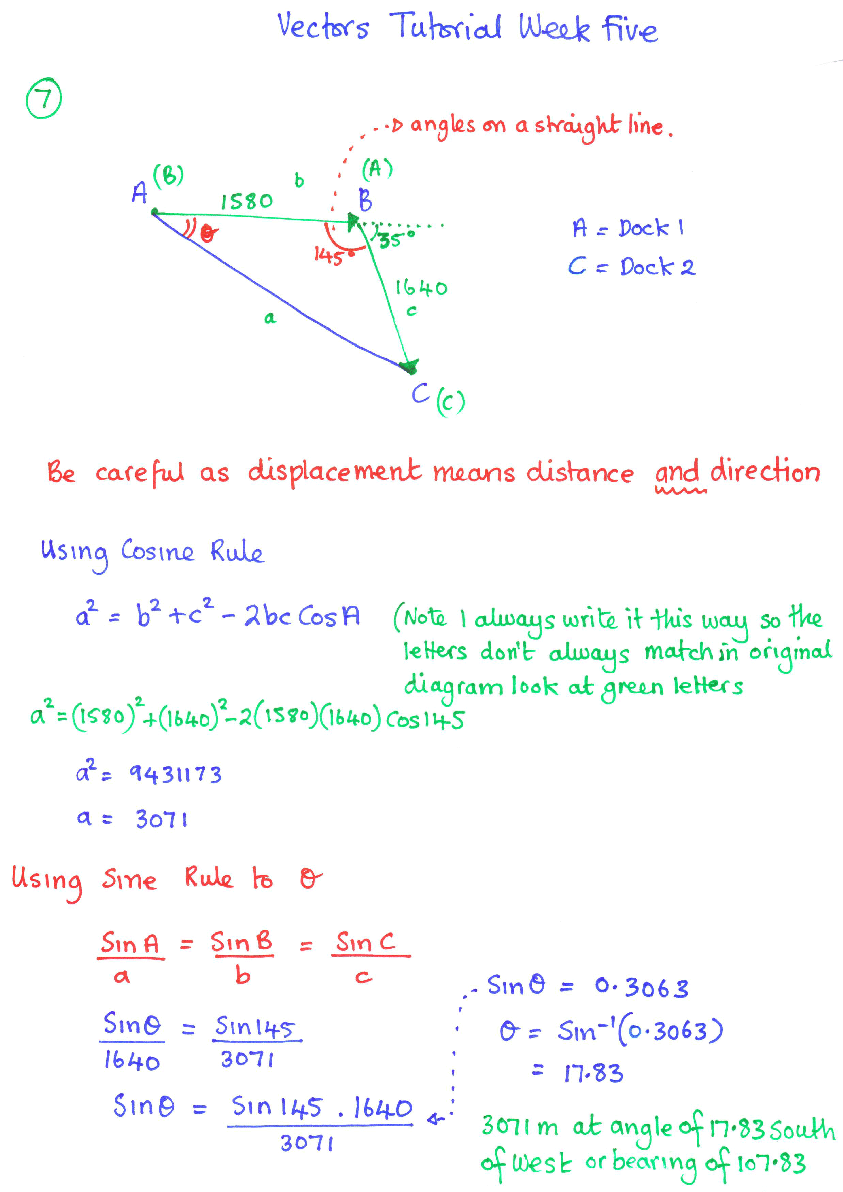 Vectors Tutorial Week Five
7
angles on a straight line.
A (B)
1580
b
(A)
B
θ
145°
35°
1640
c
a
C (C)
A = Dock 1
C = Dock 2
Be careful as displacement means distance and direction
Using Cosine Rule
a² = b² + c² - 2bc Cos A
(Note I always write it this way so the
letters don't always match in original
diagram look at green letters
a² = (1580)² + (1640)² - 2(1580)(1640) Cos 145
a² = 9431173
a = 3071
Using Sine Rule to θ
Sin A / a = Sin B / b = Sin C / c
Sin θ / 1640 = Sin 145 / 3071
Sin θ = Sin 145 . 1640 / 3071
Sin θ = 0.3063
θ = Sin⁻¹(0.3063)
= 17.83
3071 m at angle of 17.83 South
of West or bearing of 107.83